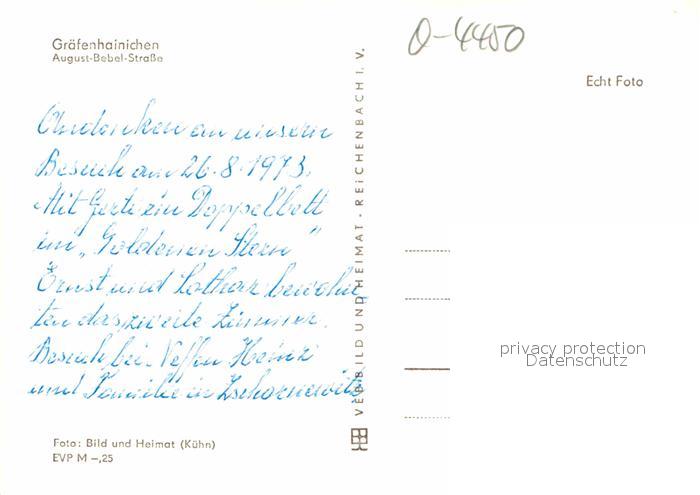 Gräfenhainichen
August-Bebel-Straße
O-4450
Echt Foto
Andenken an unsern
Besuch am 26.8.1973.
Mit Gerti ein Doppelbett
im „Goldenen Stern"
Ernst und Lothar bewohn
ten das zweite Zimmer.
Besuch bei Neffen Heinz
und Familie in Zschornewitz
VEB BILD UND HEIMAT · REICHENBACH I. V.
privacy protection
Datenschutz
Foto: Bild und Heimat (Kühn)
EVP M –,25